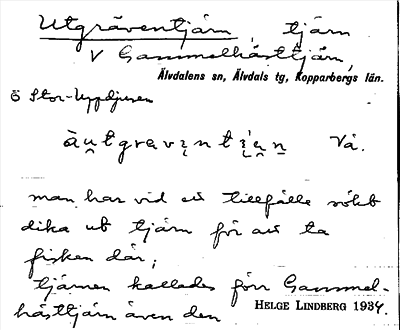 Utgräventjärn, tjärn
V Gammelhästtjärn,
Älvdalens sn, Älvdals tg, Kopparbergs län.
Ö Stor-Uppdjusen
Vå.
man har vid ett tillfälle sökt
dika ut tjärn för att ta
fisken där;
tjärnen kallades förr Gammel-
hästtjärn även den
HELGE LINDBERG 1934.